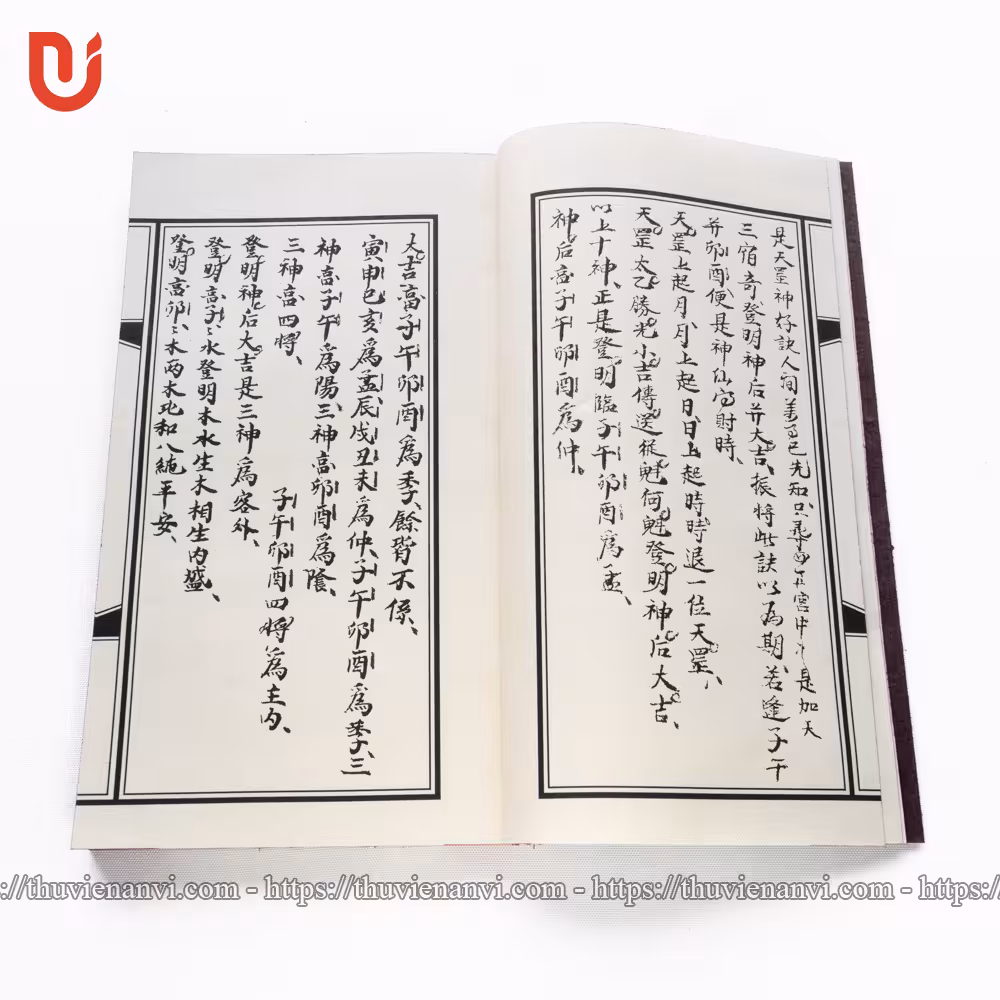 是天罡神好訣人間善惡已先知只尋西天宮中十是加天
三宿奇登明神后并大吉振將此訣以為期若逢子午
并卯酉便是神仙守財時、
天罡上起月月上起日日上起時時退一位天罡、
天罡太乙勝光小吉傳送從魁何魁登明神后大吉、
以上十神、正是登明臨子午卯酉為孟、
神后高子午卯酉為仲、
大吉高子午卯酉為季、餘皆不係、
寅申巳亥為孟、辰戌丑未為仲、子午卯酉為季、三
神高子午為陽、三神高卯酉為陰、
三神高四將、 子午卯酉四將為主內、
登明神后大吉是三神為客外、
登明高子三水登明木水生木相生內盛、
登明高卯三木兩木比和八純平安、
https://thuvienanvi.com - https://thuvienanvi.com - https://thuvienanvi.com - https://thuvienanvi.com